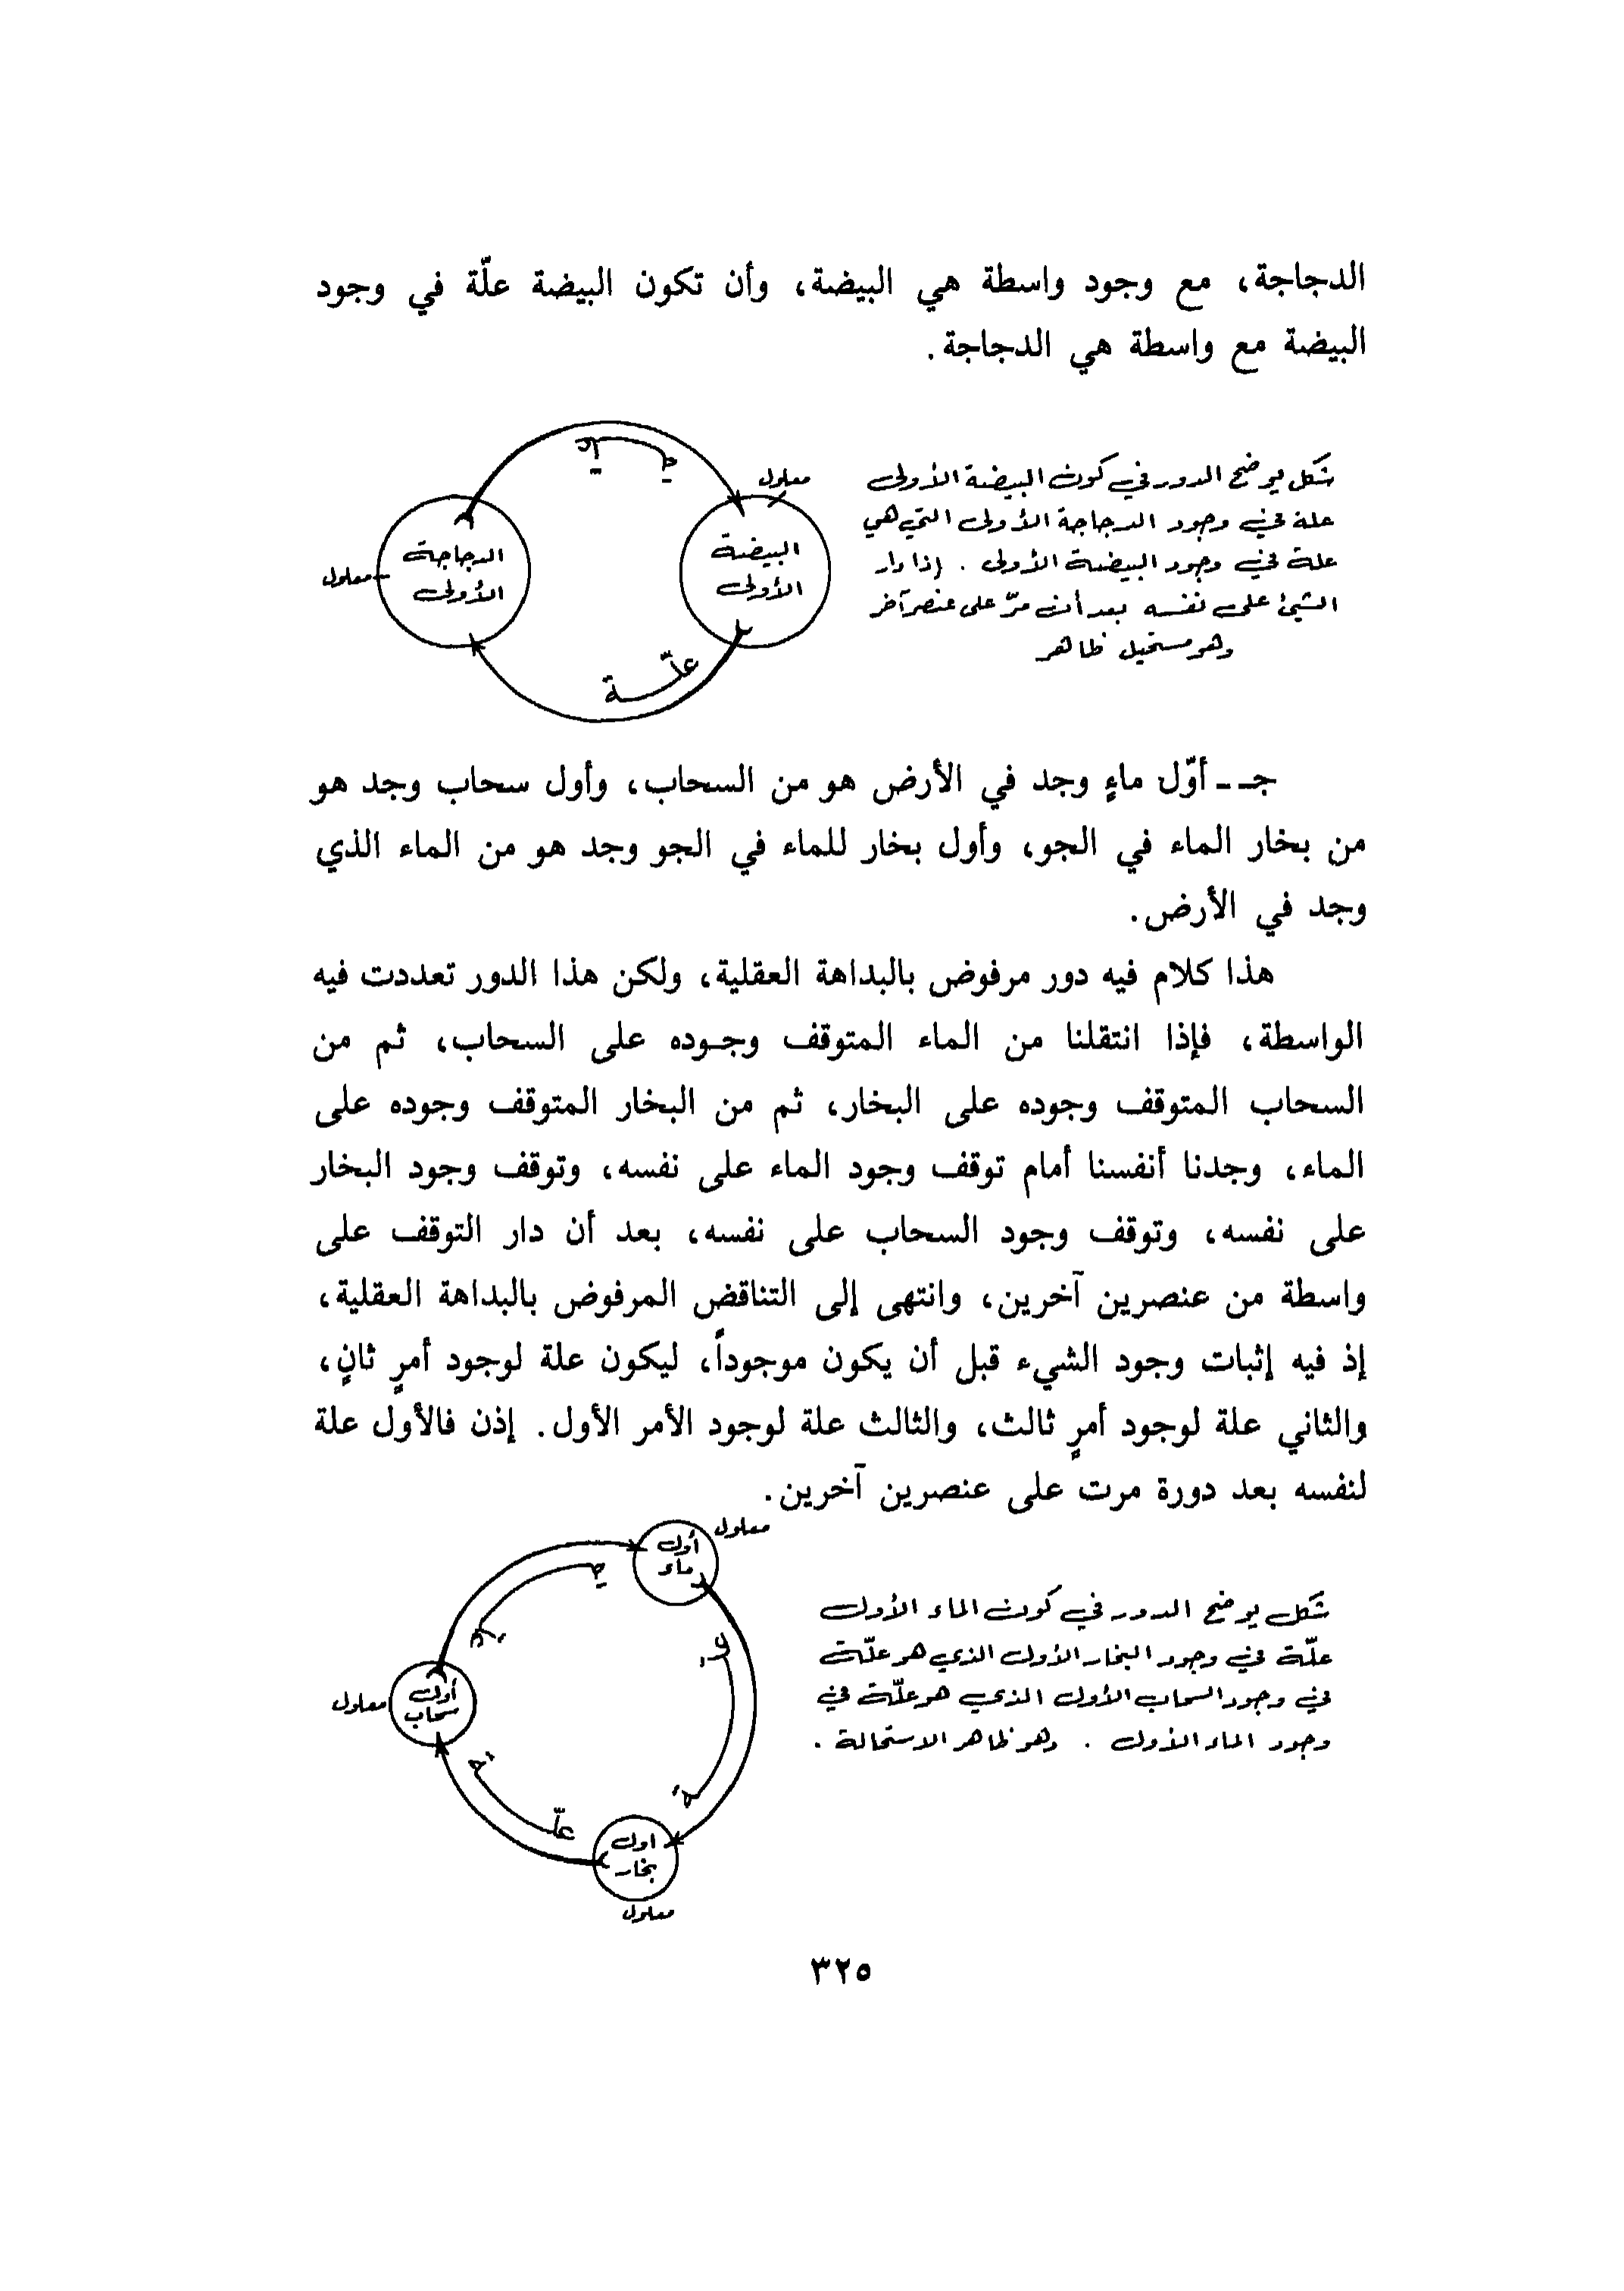 الدجاجة، مع وجود واسطة هي البيضة، وأن تكون البيضة علّة في وجود
البيضة مع واسطة هي الدجاجة.
شكل يوضح الدور في كون البيضة الأولى
علة في وجود الدجاجة الأولى التي هي
علة في وجود البيضة الأولى . إذا دار
الشيئ على نفسه بعد أن مرّ على عنصر آخر
وهو مستحيل ظاهر
معلول
البيضة
الأولى
علّة
الدجاجة
الأولى
معلول
علّة
جـ ـ أوّل ماءٍ وجد في الأرض هو من السحاب، وأول سحاب وجد هو
من بخار الماء في الجو، وأول بخار للماء في الجو وجد هو من الماء الذي
وجد في الأرض.
هذا كلام فيه دور مرفوض بالبداهة العقلية، ولكن هذا الدور تعددت فيه
الواسطة، فإذا انتقلنا من الماء المتوقف وجوده على السحاب، ثم من
السحاب المتوقف وجوده على البخار، ثم من البخار المتوقف وجوده على
الماء، وجدنا أنفسنا أمام توقف وجود الماء على نفسه، وتوقف وجود البخار
على نفسه، وتوقف وجود السحاب على نفسه، بعد أن دار التوقف على
واسطة من عنصرين آخرين، وانتهى إلى التناقض المرفوض بالبداهة العقلية،
إذ فيه إثبات وجود الشيء قبل أن يكون موجوداً، ليكون علة لوجود أمرٍ ثانٍ،
والثاني علة لوجود أمرٍ ثالث، والثالث علة لوجود الأمر الأول. إذن فالأول علة
لنفسه بعد دورة مرت على عنصرين آخرين.
شكل يوضح الدور في كون الماء الأول
علّة في وجود البخار الأول الذي هو علّة
في وجود السحاب الأول الذي هو علّة في
وجود الماء الأول . وهو ظاهر الاستحالة .
معلول
أول
ماء
علّة
علّة
أول
سحاب
معلول
علّة
اول
بخار
معلول
٣٢٥